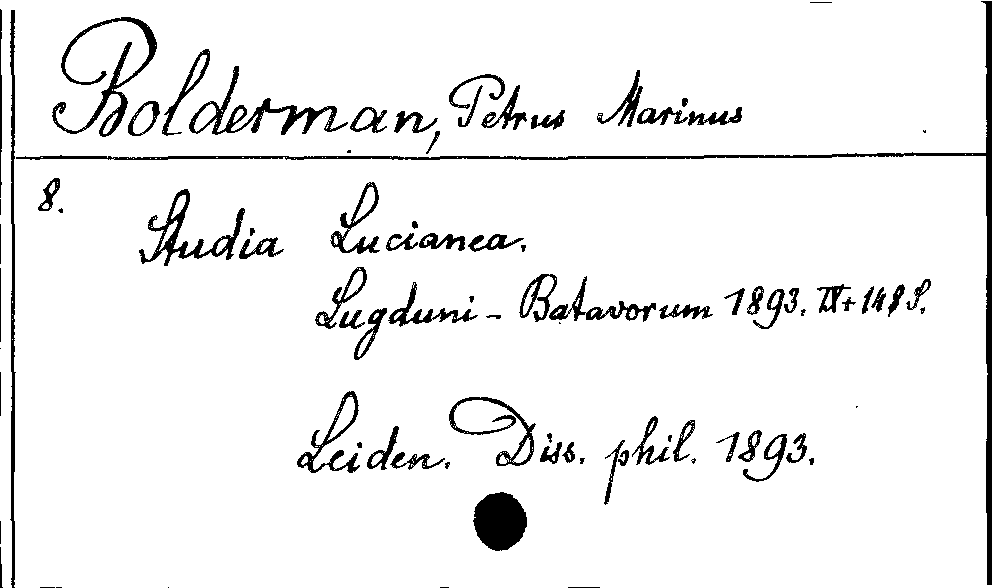 Bolderman, Petrus Marinus
8.
Studia Lucianea.
Lugduni - Batavorum 1893. IV + 148 S.
Leiden. Diss. phil. 1893.